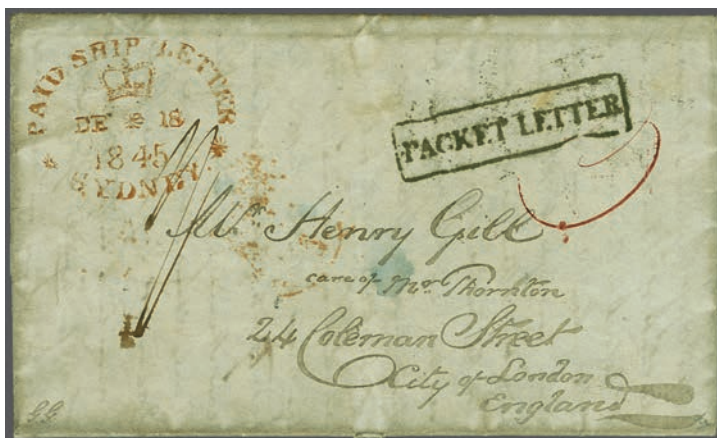 PAID SHIP LETTER
DE 18
1845
SYDNEY
PACKET LETTER
Mr. Henry Gill
care of Mr Thornton
24 Coleman Street
City of London
England
G.G.